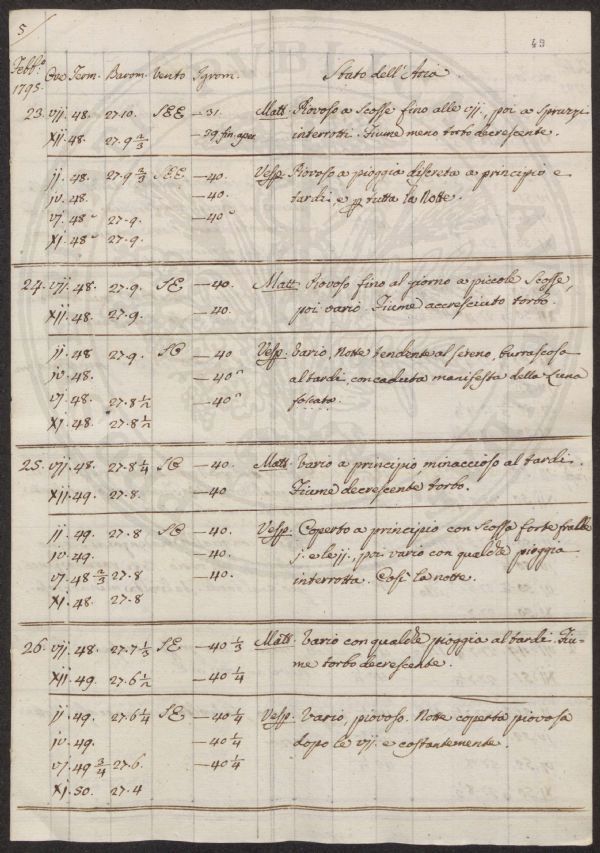 5
49
Febb.o
1795. Ore Term. Barom. Vento Igrom. Stato dell'Aria
23. vij. 48. 27.10. SEE —31. Matt. Piovoso a Scosse fino alle vij, poi a Spruzzi
xij. 48. 27.9 2/3 —39 interrotti. Fiume meno torbo decrescente.
ij. 48. 27.9 2/3 SEE —40. Vesp. Piovoso a pioggia discreta a principio e
iv. 48. —40. tardi, e pp tutta la Notte.
vj. 48 27.9. —40
xj. 48 27.9.
24. vij. 48. 27.9. SE —40. Matt. Piovoso fino al giorno a piccole Scosse,
xij. 48. 27.9. —40. poi vario. Fiume accresciuto torbo.
ij. 48 27.9. SE —40 Vesp. Vario, Notte tendente al sereno, burrascosa
iv. 48. —40 al tardi, con caduta manifesta della Luna
vj. 48. 27.8 1/2 —40 foscata.
xj. 48. 27.8 1/2
25. vij. 48. 27.8 1/4 SE —40. Matt. Vario a principio, minaccioso al tardi.
xij. 49. 27.8. —40 Fiume decrescente torbo.
ij. 49. 27.8 SE —40. Vesp. Coperto a principio con Scossa forte fralle
iv. 49. —40. j. e le ij. poi vario con qualche pioggia
vj. 48 2/3 27.8 —40. interrotta. Così la notte.
xj. 48 27.8
26. vij. 48. 27.7 1/3 SE —40 1/3 Matt. Vario con qualche pioggia al tardi. Fiu-
xij. 49. 27.6 1/2 —40 1/4 me torbo decrescente.
ij. 49. 27.6 1/4 SE —40 1/4 Vesp. Vario, piovoso. Notte coperta piovosa
iv. 49. —40 1/4 dopo le vij. e costantemente.
vj. 49 3/4 27.6. —40 1/4
xj. 50. 27.4